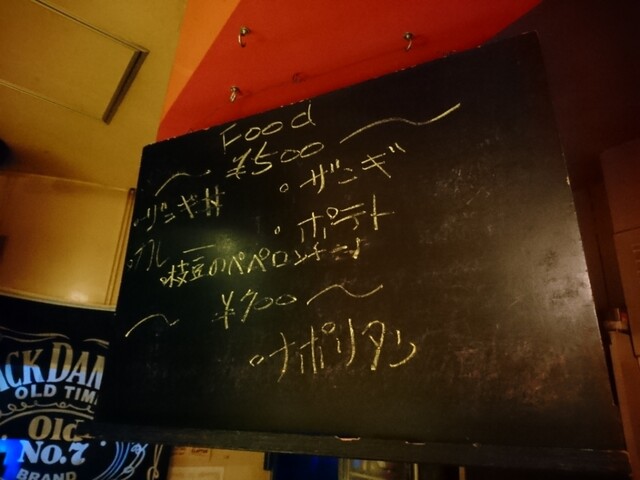 Food
〜 ¥500 〜
・ザンギ丼
・ザンギ
・カレー
・ポテト
・枝豆のペペロンチーノ
〜 ¥700 〜
・ナポリタン
ACK DAN
OLD TIM
Old
No.7
BRAND